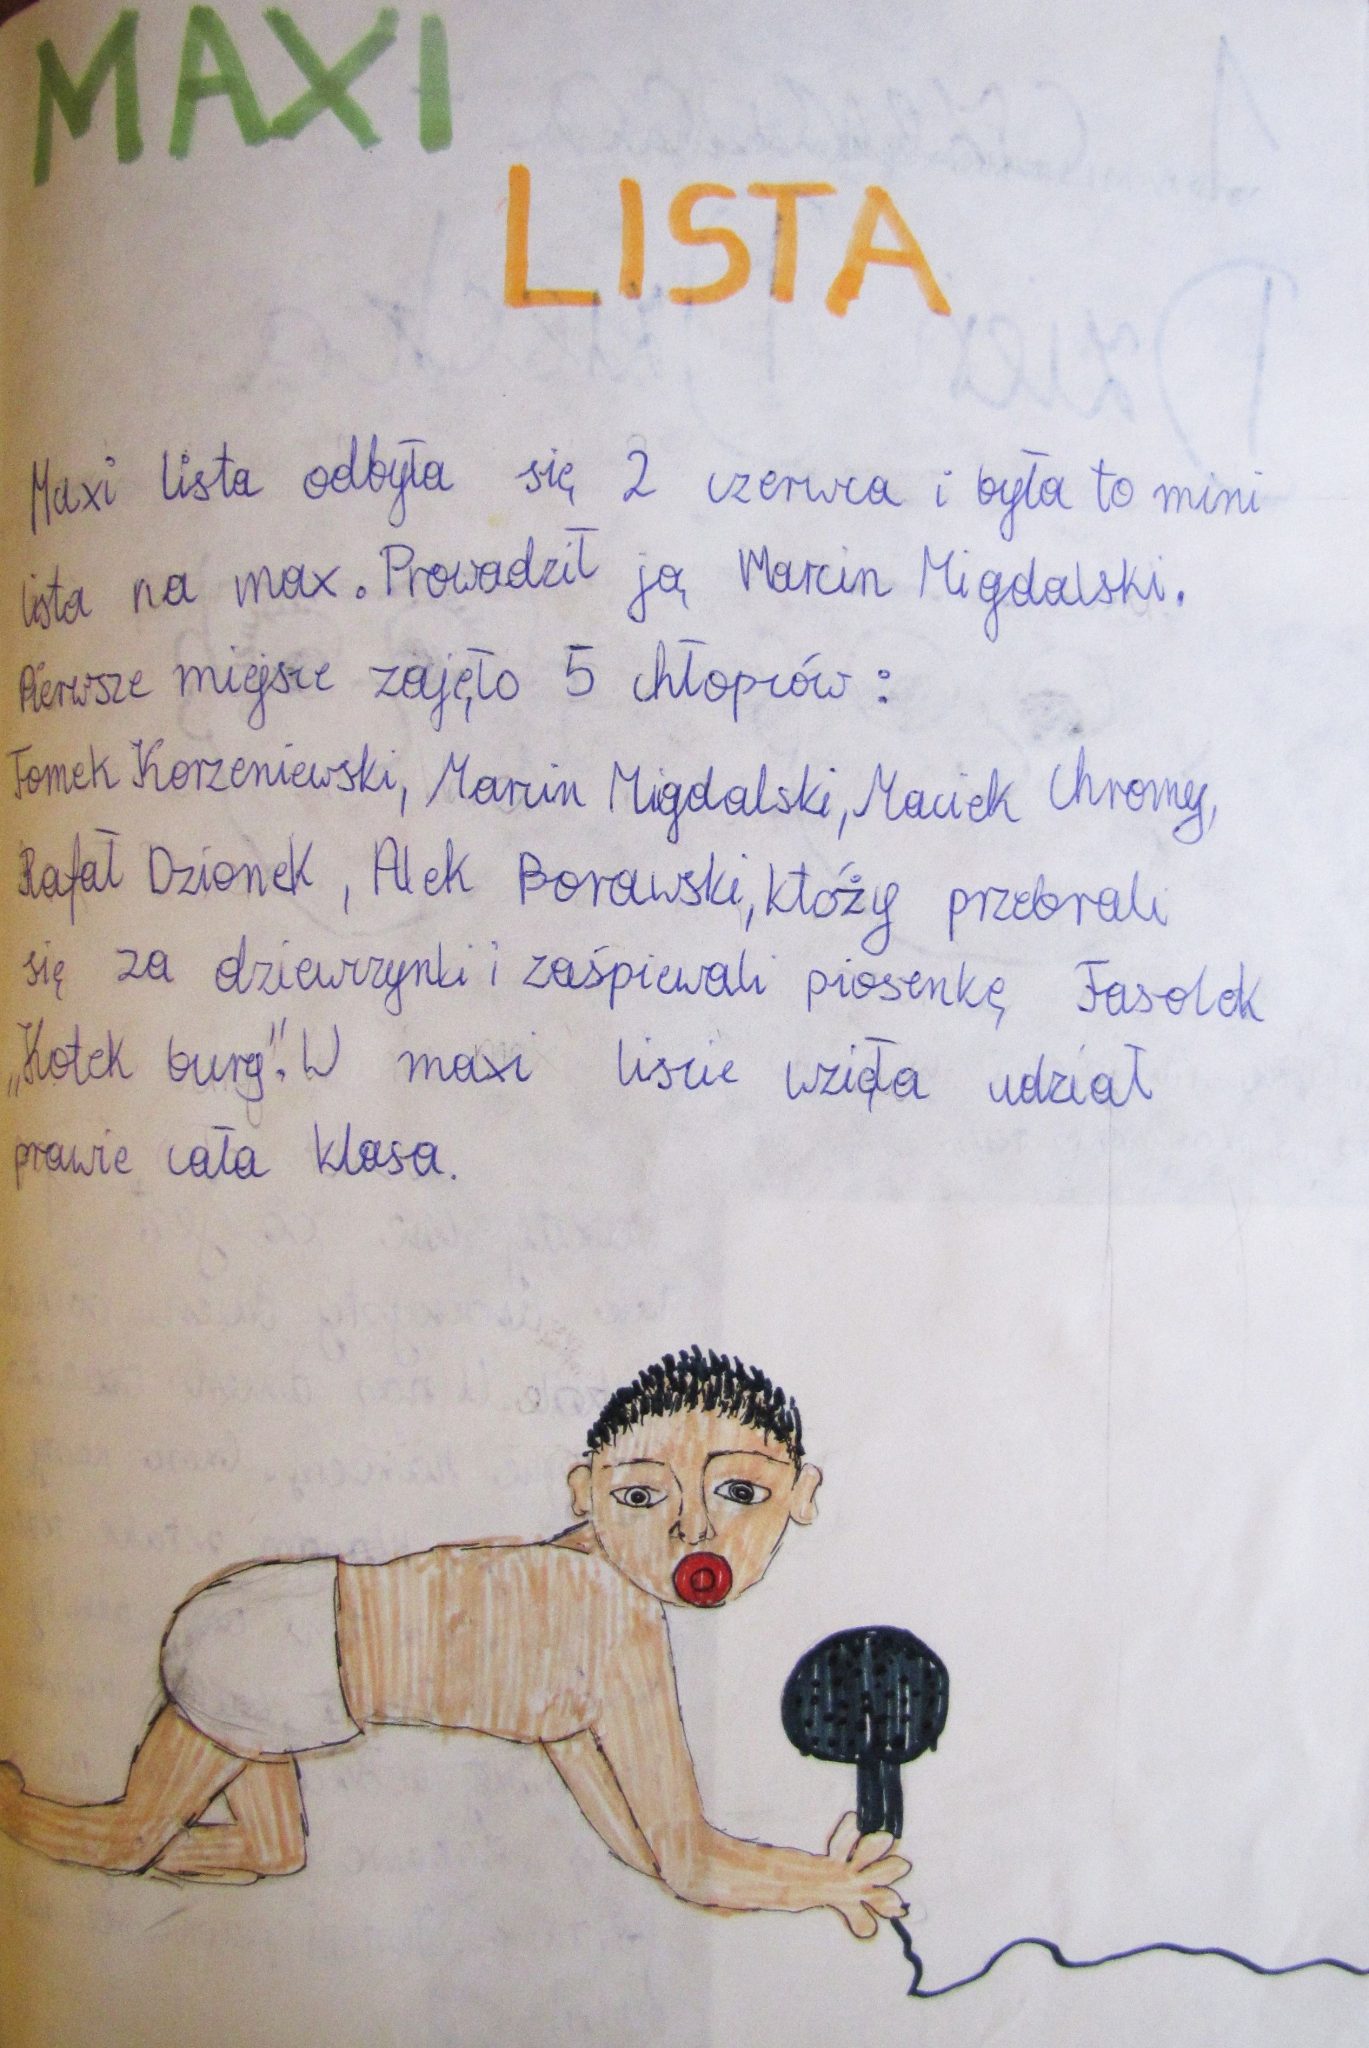 MAXI
LISTA
Maxi lista odbyła się 2 czerwca i była to mini
lista na max. Prowadził ją Marcin Migdalski.
Pierwsze miejsce zajęło 5 chłopców:
Tomek Korzeniewski, Marcin Migdalski, Maciek Chromy,
Rafał Dzionek, Alek Borawski, któży przebrali
się za dziewczynki i zaśpiewali piosenkę Fasolek
„Kotek bury". W maxi liście wzięła udział
prawie cała klasa.